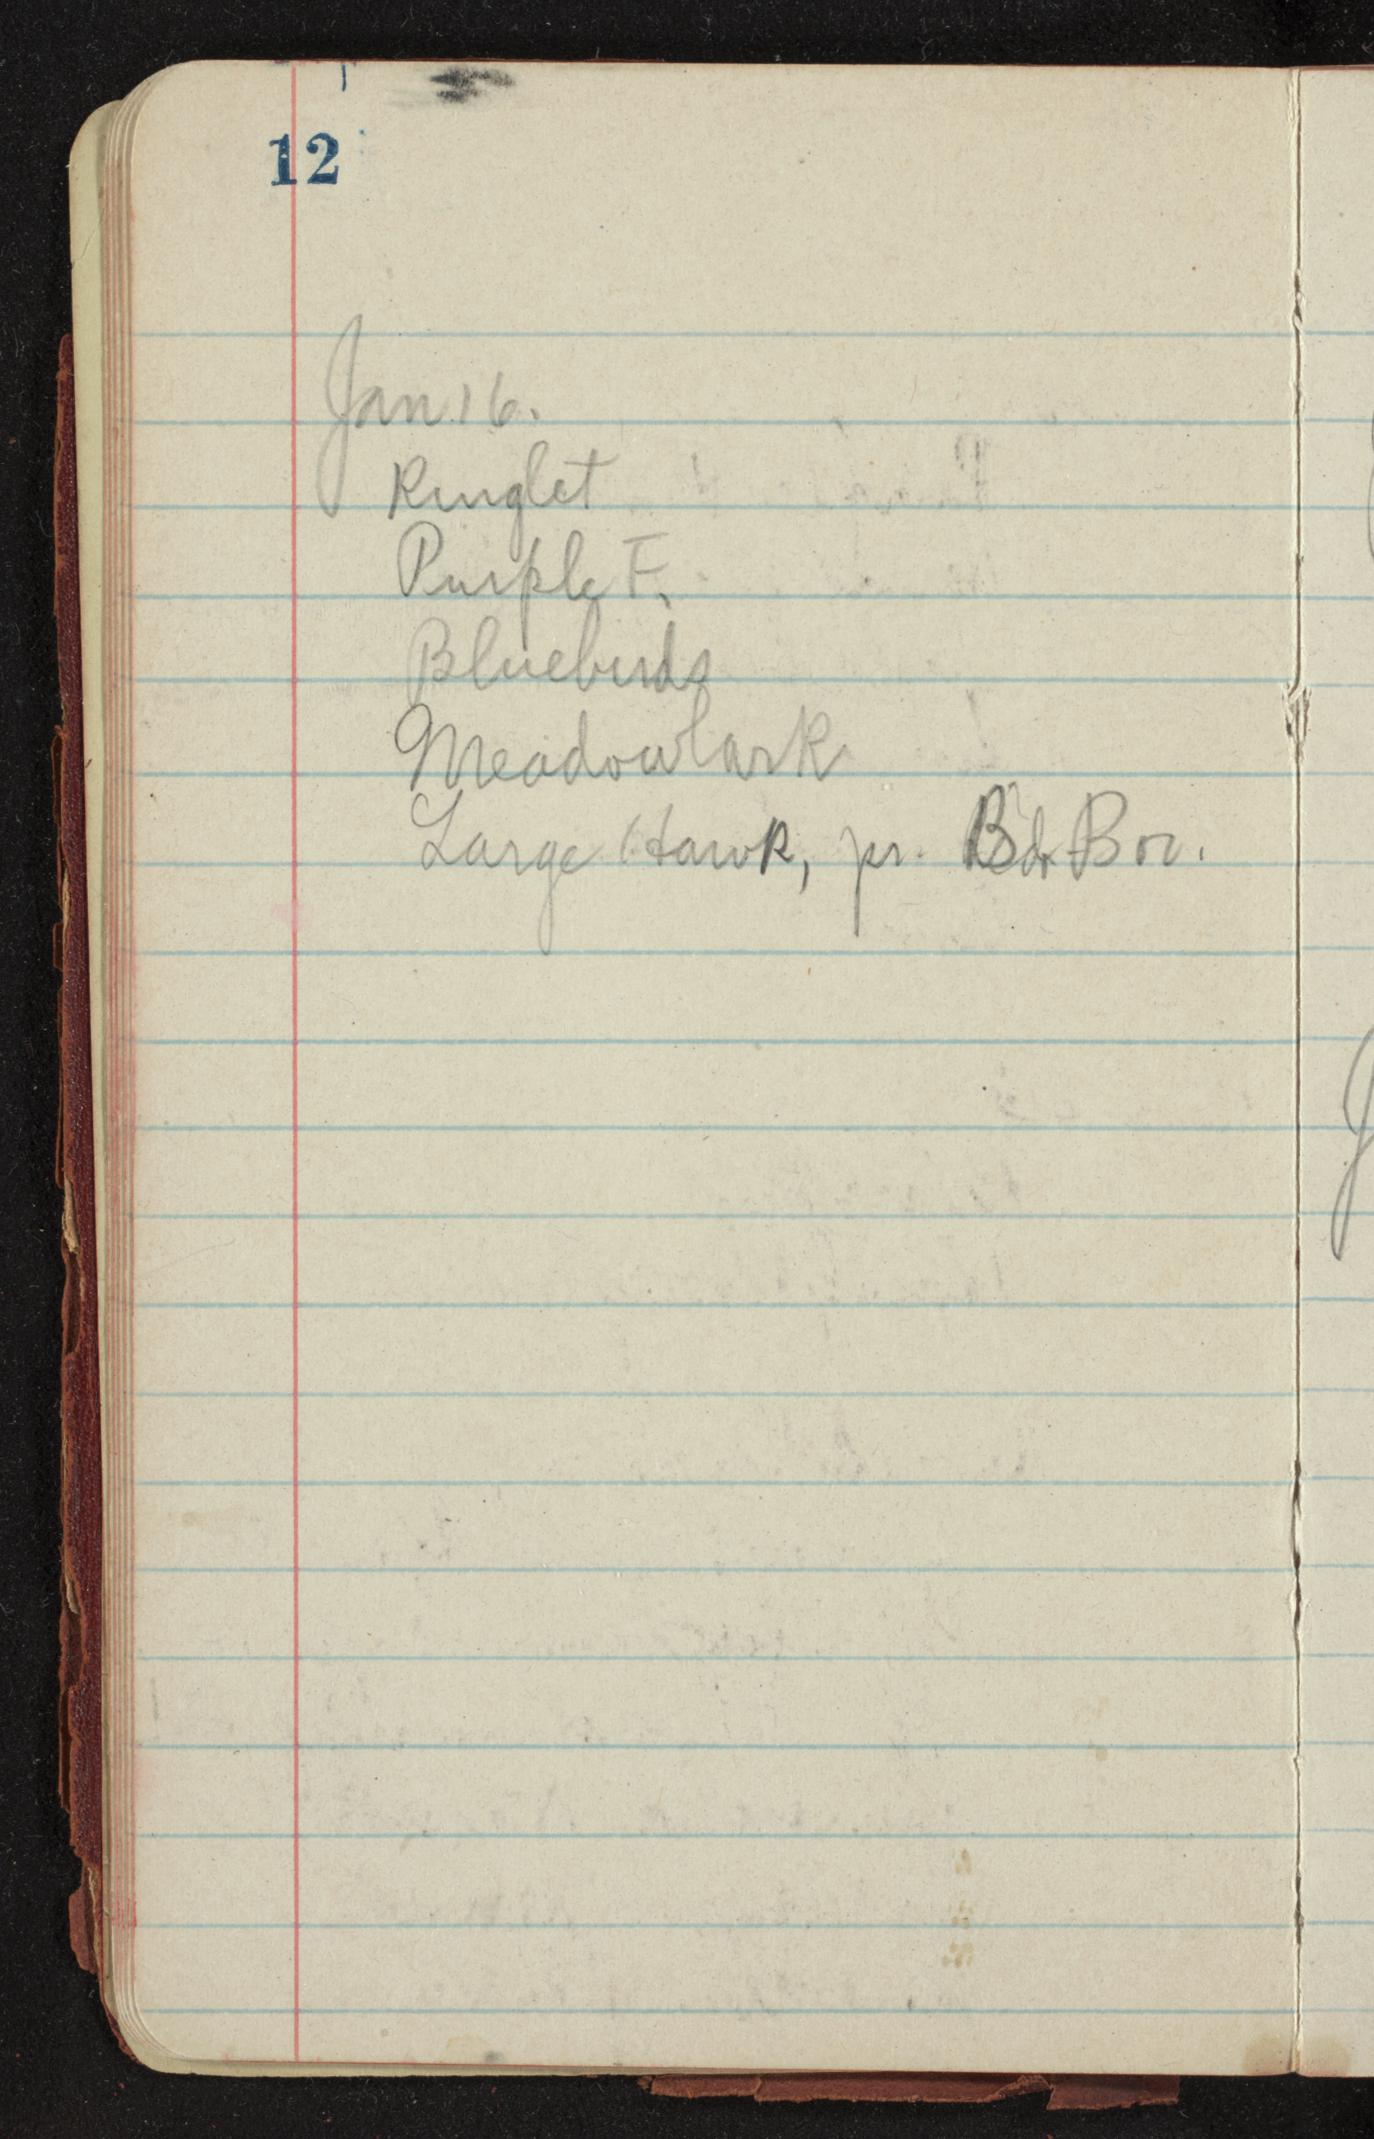 12
Jan. 16.
Kinglet
Purple F.
Bluebirds
Meadowlark
Large Hawk, pr.